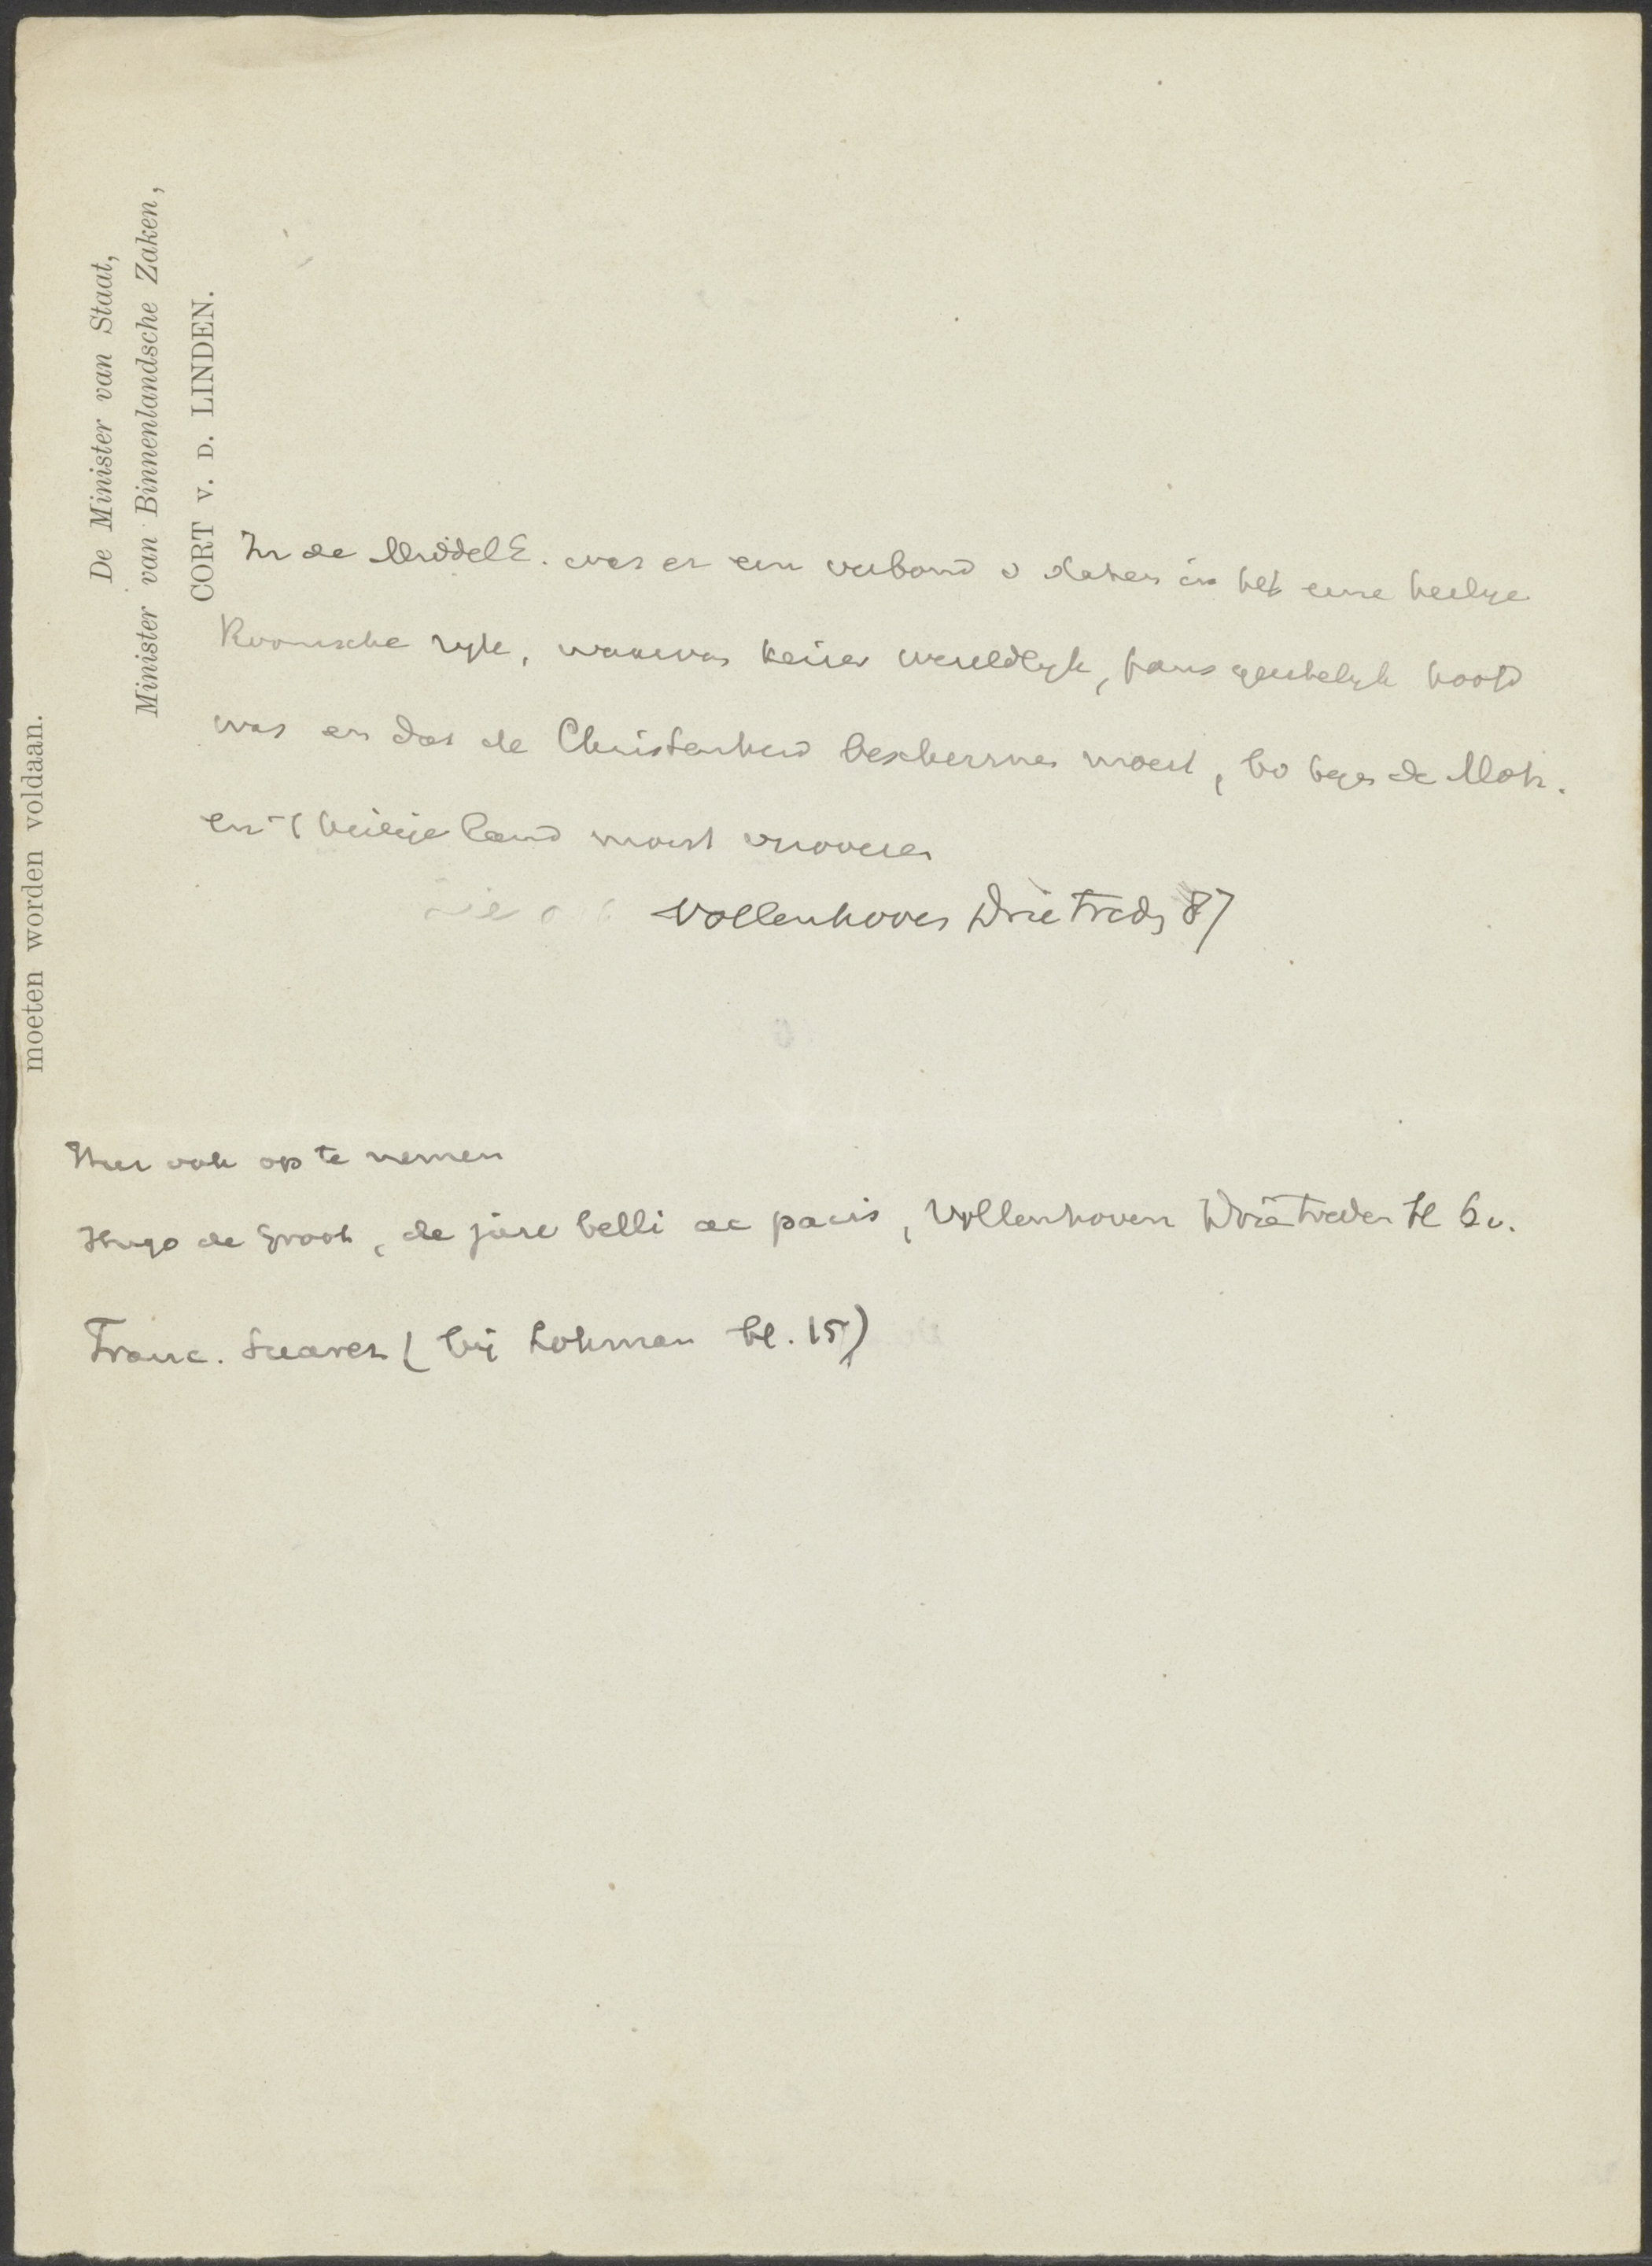 moeten worden voldaan.
De Minister van Staat,
Minister van Binnenlandsche Zaken,
CORT v. D. LINDEN.
In de MiddelE. was er een verband v Staten in het eene heilige
Roomsche ryk, waarvan keizer wereldlyk, paus geestelyk hoofd
was en dat de Christenheid beschermen moest, bv tegen de Moh.
en 't heilige land moest veroveren
Vollenhoven Drie Treds 87
Hier ook op te nemen
Hugo de Groot, de jure belli ac pacis, Vollenhoven Drie treden bl
Franc. Suarez (bij Lohman bl. 15)